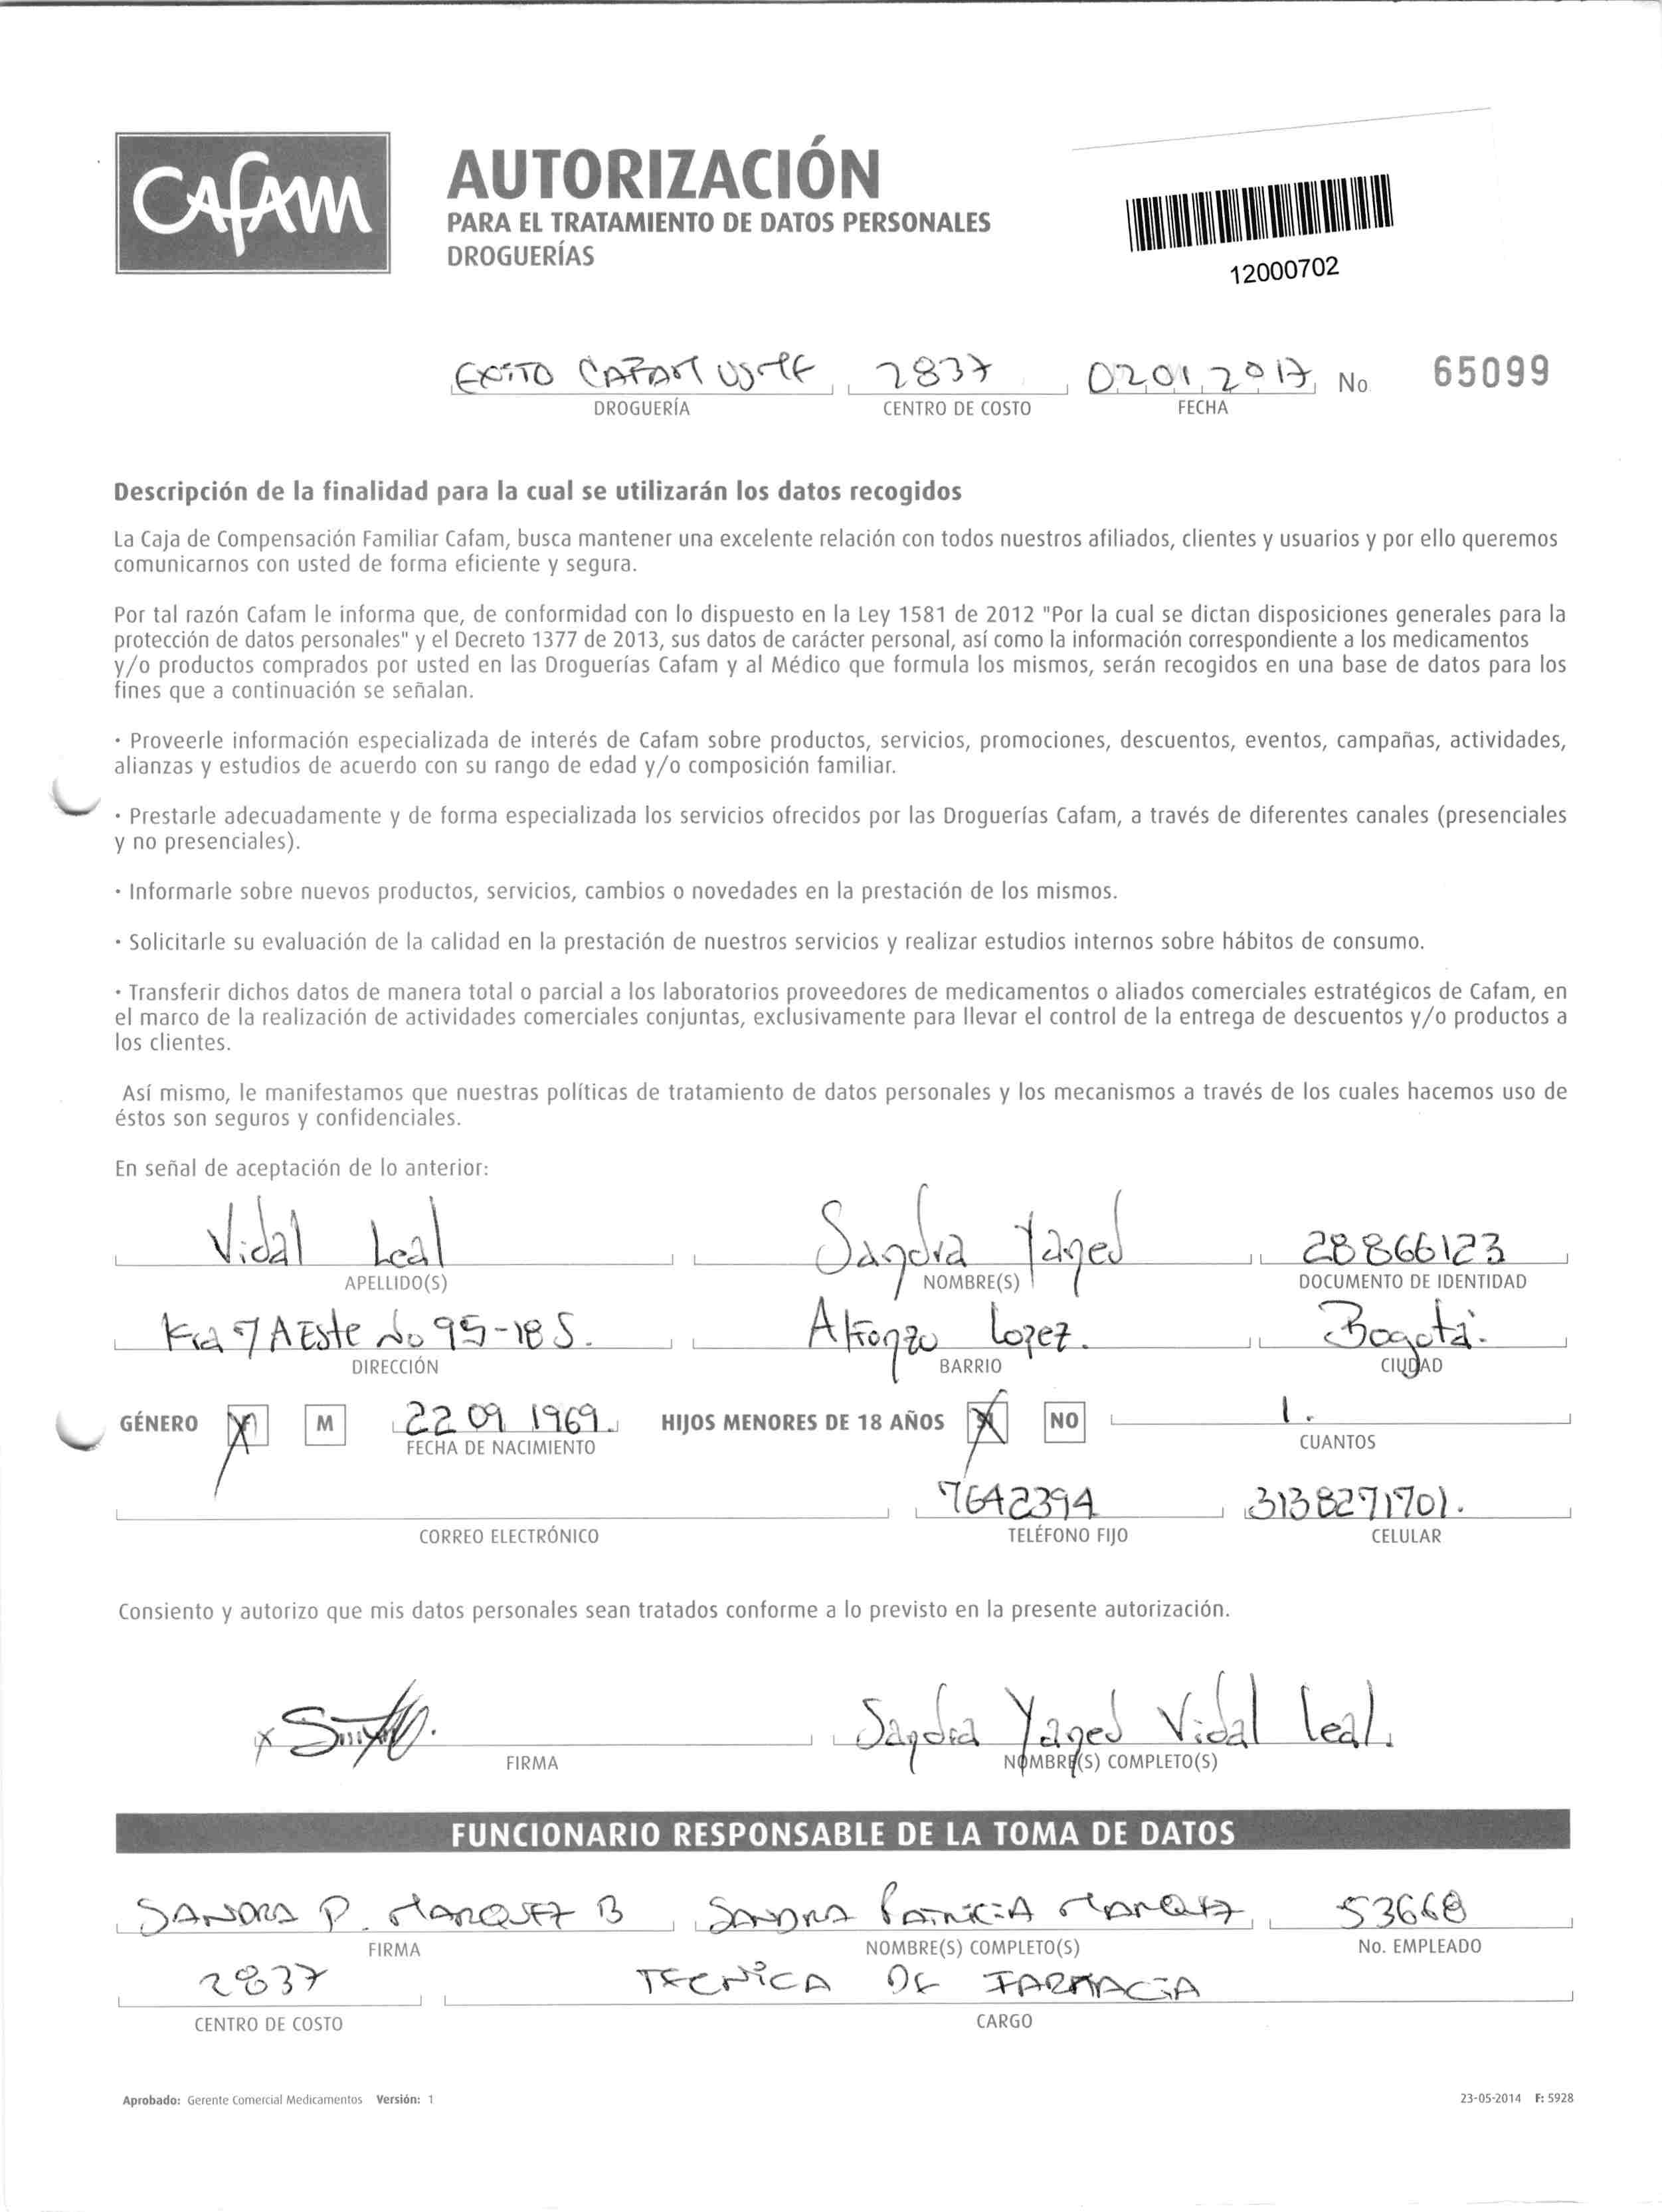 Cafam
AUTORIZACIÓN
PARA EL TRATAMIENTO DE DATOS PERSONALES
DROGUERÍAS
12000702
EXITO CAFAM 2837 02 01 2017 No 65099
DROGUERÍA CENTRO DE COSTO FECHA
Descripción de la finalidad para la cual se utilizarán los datos recogidos
La Caja de Compensación Familiar Cafam, busca mantener una excelente relación con todos nuestros afiliados, clientes y usuarios y por ello queremos
comunicarnos con usted de forma eficiente y segura.
Por tal razón Cafam le informa que, de conformidad con lo dispuesto en la Ley 1581 de 2012 "Por la cual se dictan disposiciones generales para la
protección de datos personales" y el Decreto 1377 de 2013, sus datos de carácter personal, así como la información correspondiente a los medicamentos
y/o productos comprados por usted en las Droguerías Cafam y al Médico que formula los mismos, serán recogidos en una base de datos para los
fines que a continuación se señalan.
· Proveerle información especializada de interés de Cafam sobre productos, servicios, promociones, descuentos, eventos, campañas, actividades,
alianzas y estudios de acuerdo con su rango de edad y/o composición familiar.
· Prestarle adecuadamente y de forma especializada los servicios ofrecidos por las Droguerías Cafam, a través de diferentes canales (presenciales
y no presenciales).
· Informarle sobre nuevos productos, servicios, cambios o novedades en la prestación de los mismos.
· Solicitarle su evaluación de la calidad en la prestación de nuestros servicios y realizar estudios internos sobre hábitos de consumo.
· Transferir dichos datos de manera total o parcial a los laboratorios proveedores de medicamentos o aliados comerciales estratégicos de Cafam, en
el marco de la realización de actividades comerciales conjuntas, exclusivamente para llevar el control de la entrega de descuentos y/o productos a
los clientes.
Así mismo, le manifestamos que nuestras políticas de tratamiento de datos personales y los mecanismos a través de los cuales hacemos uso de
éstos son seguros y confidenciales.
En señal de aceptación de lo anterior:
Vidal Leal Sandra Yaned 28866123
APELLIDO(S) NOMBRE(S) DOCUMENTO DE IDENTIDAD
Kra 7 A Este No 95-18 S. Alfonzo Lopez. Bogotá.
DIRECCIÓN BARRIO CIUDAD
GÉNERO F M 22 09 1969. HIJOS MENORES DE 18 AÑOS SI NO 1.
FECHA DE NACIMIENTO CUANTOS
7642394 3138271701.
CORREO ELECTRÓNICO TELÉFONO FIJO CELULAR
Consiento y autorizo que mis datos personales sean tratados conforme a lo previsto en la presente autorización.
x Sandra Yaned Vidal Leal.
FIRMA NOMBRE(S) COMPLETO(S)
FUNCIONARIO RESPONSABLE DE LA TOMA DE DATOS
SANDRA P. MARQUEZ B SANDRA PATRICIA MARQUEZ 53668
FIRMA NOMBRE(S) COMPLETO(S) No. EMPLEADO
2837 TECNICA DE FARMACIA
CENTRO DE COSTO CARGO
Aprobado: Gerente Comercial Medicamentos Versión: 1 23-05-2014 F: 5928